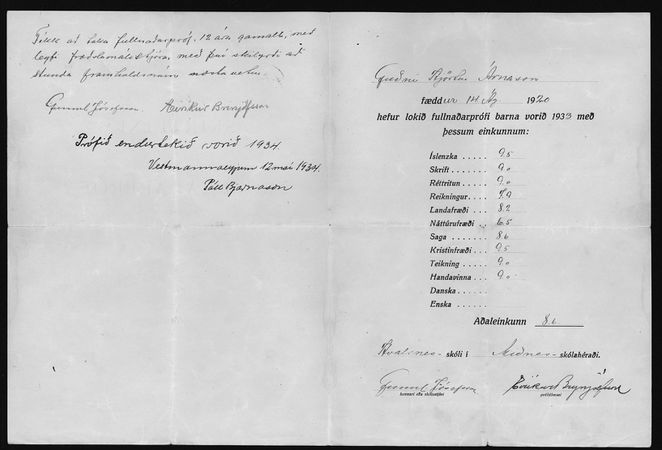 Fékk að taka fullnaðarpróf 12 ára gamall, með
leyfi fræðslumálastjóra með því skilyrði að
stunda framhaldsnám næsta vetur.
Eiríkur Brynjólfsson
Prófið endurtekið vorið 1934
Vestmannaeyjum 12 maí 1934.
Páll Bjarnason
Árnason
fæddur 14 1920
hefur lokið fullnaðarprófi barna vorið 1933 með
þessum einkunnum:
Íslenzka ..... 9.5
Skrift ...... 9.0
Réttritun .... 9.0
Reikningur .... 7.9
Landafræði ... 8.2
Náttúrufræði .. 6.5
Saga ...... 8.6
Kristinfræði ... 9.5
Teikning ..... 9.0
Handavinna .... 9.0
Danska .....
Enska ......
Aðaleinkunn 8.6
Hvalsnes- skóli í Miðnes- skólahéraði.
Eiríkur Brynjólfsson
kennari eða skólastjóri prófdómari